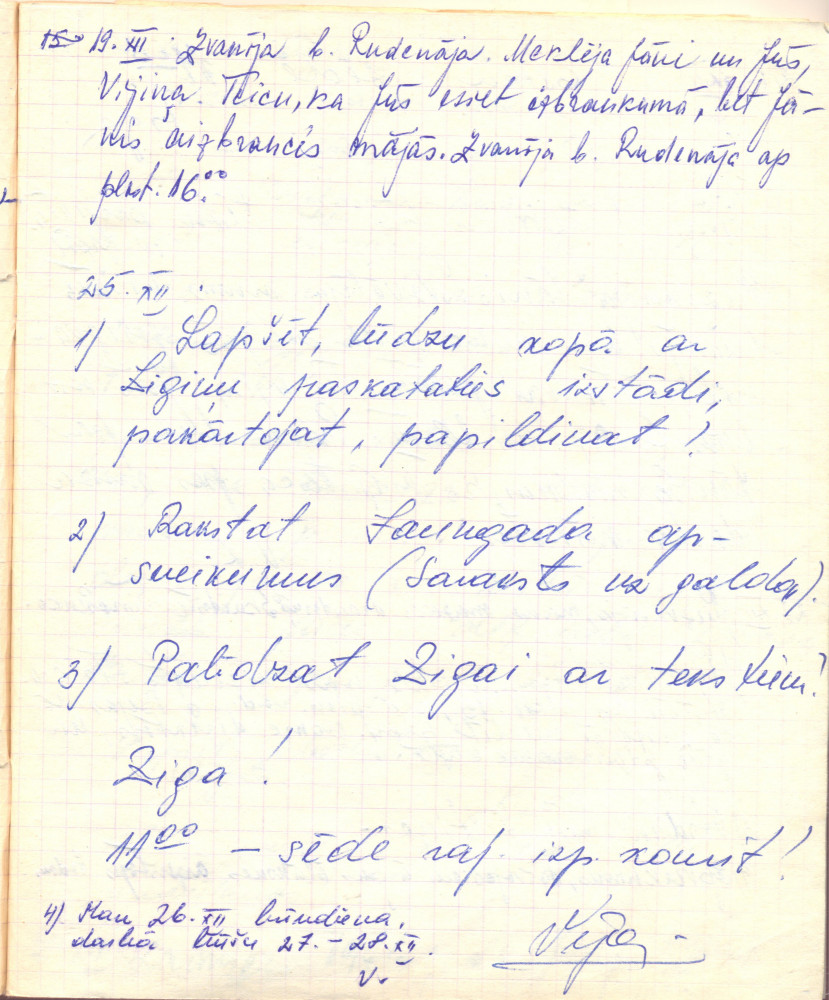 19. XII. Zvanīja b. Rudenāja. Meklēja Jāni un Jūs,
Vijiņa. Teicu, ka Jūs esiet izbraukumā, bet Jā-
nis aizbraucis mājās. Zvanīja b. Rudenāja ap
plkst. 16.00
25. XII.
1) Lapšēt, lūdzu kopā ar
Zigiņu paskataties izstādi,
pakārtojat, papildinat!
2) Rakstat Jaungada ap-
sveikumus (Saraksts uz galda).
3) Palīdzat Zigai ar tekstiem!
Ziga!
11 00 – sēde raj. izp. komit!
4) Man 26. XII brīvdiena,
darbā būšu 27. – 28. XII.
V.
Vija